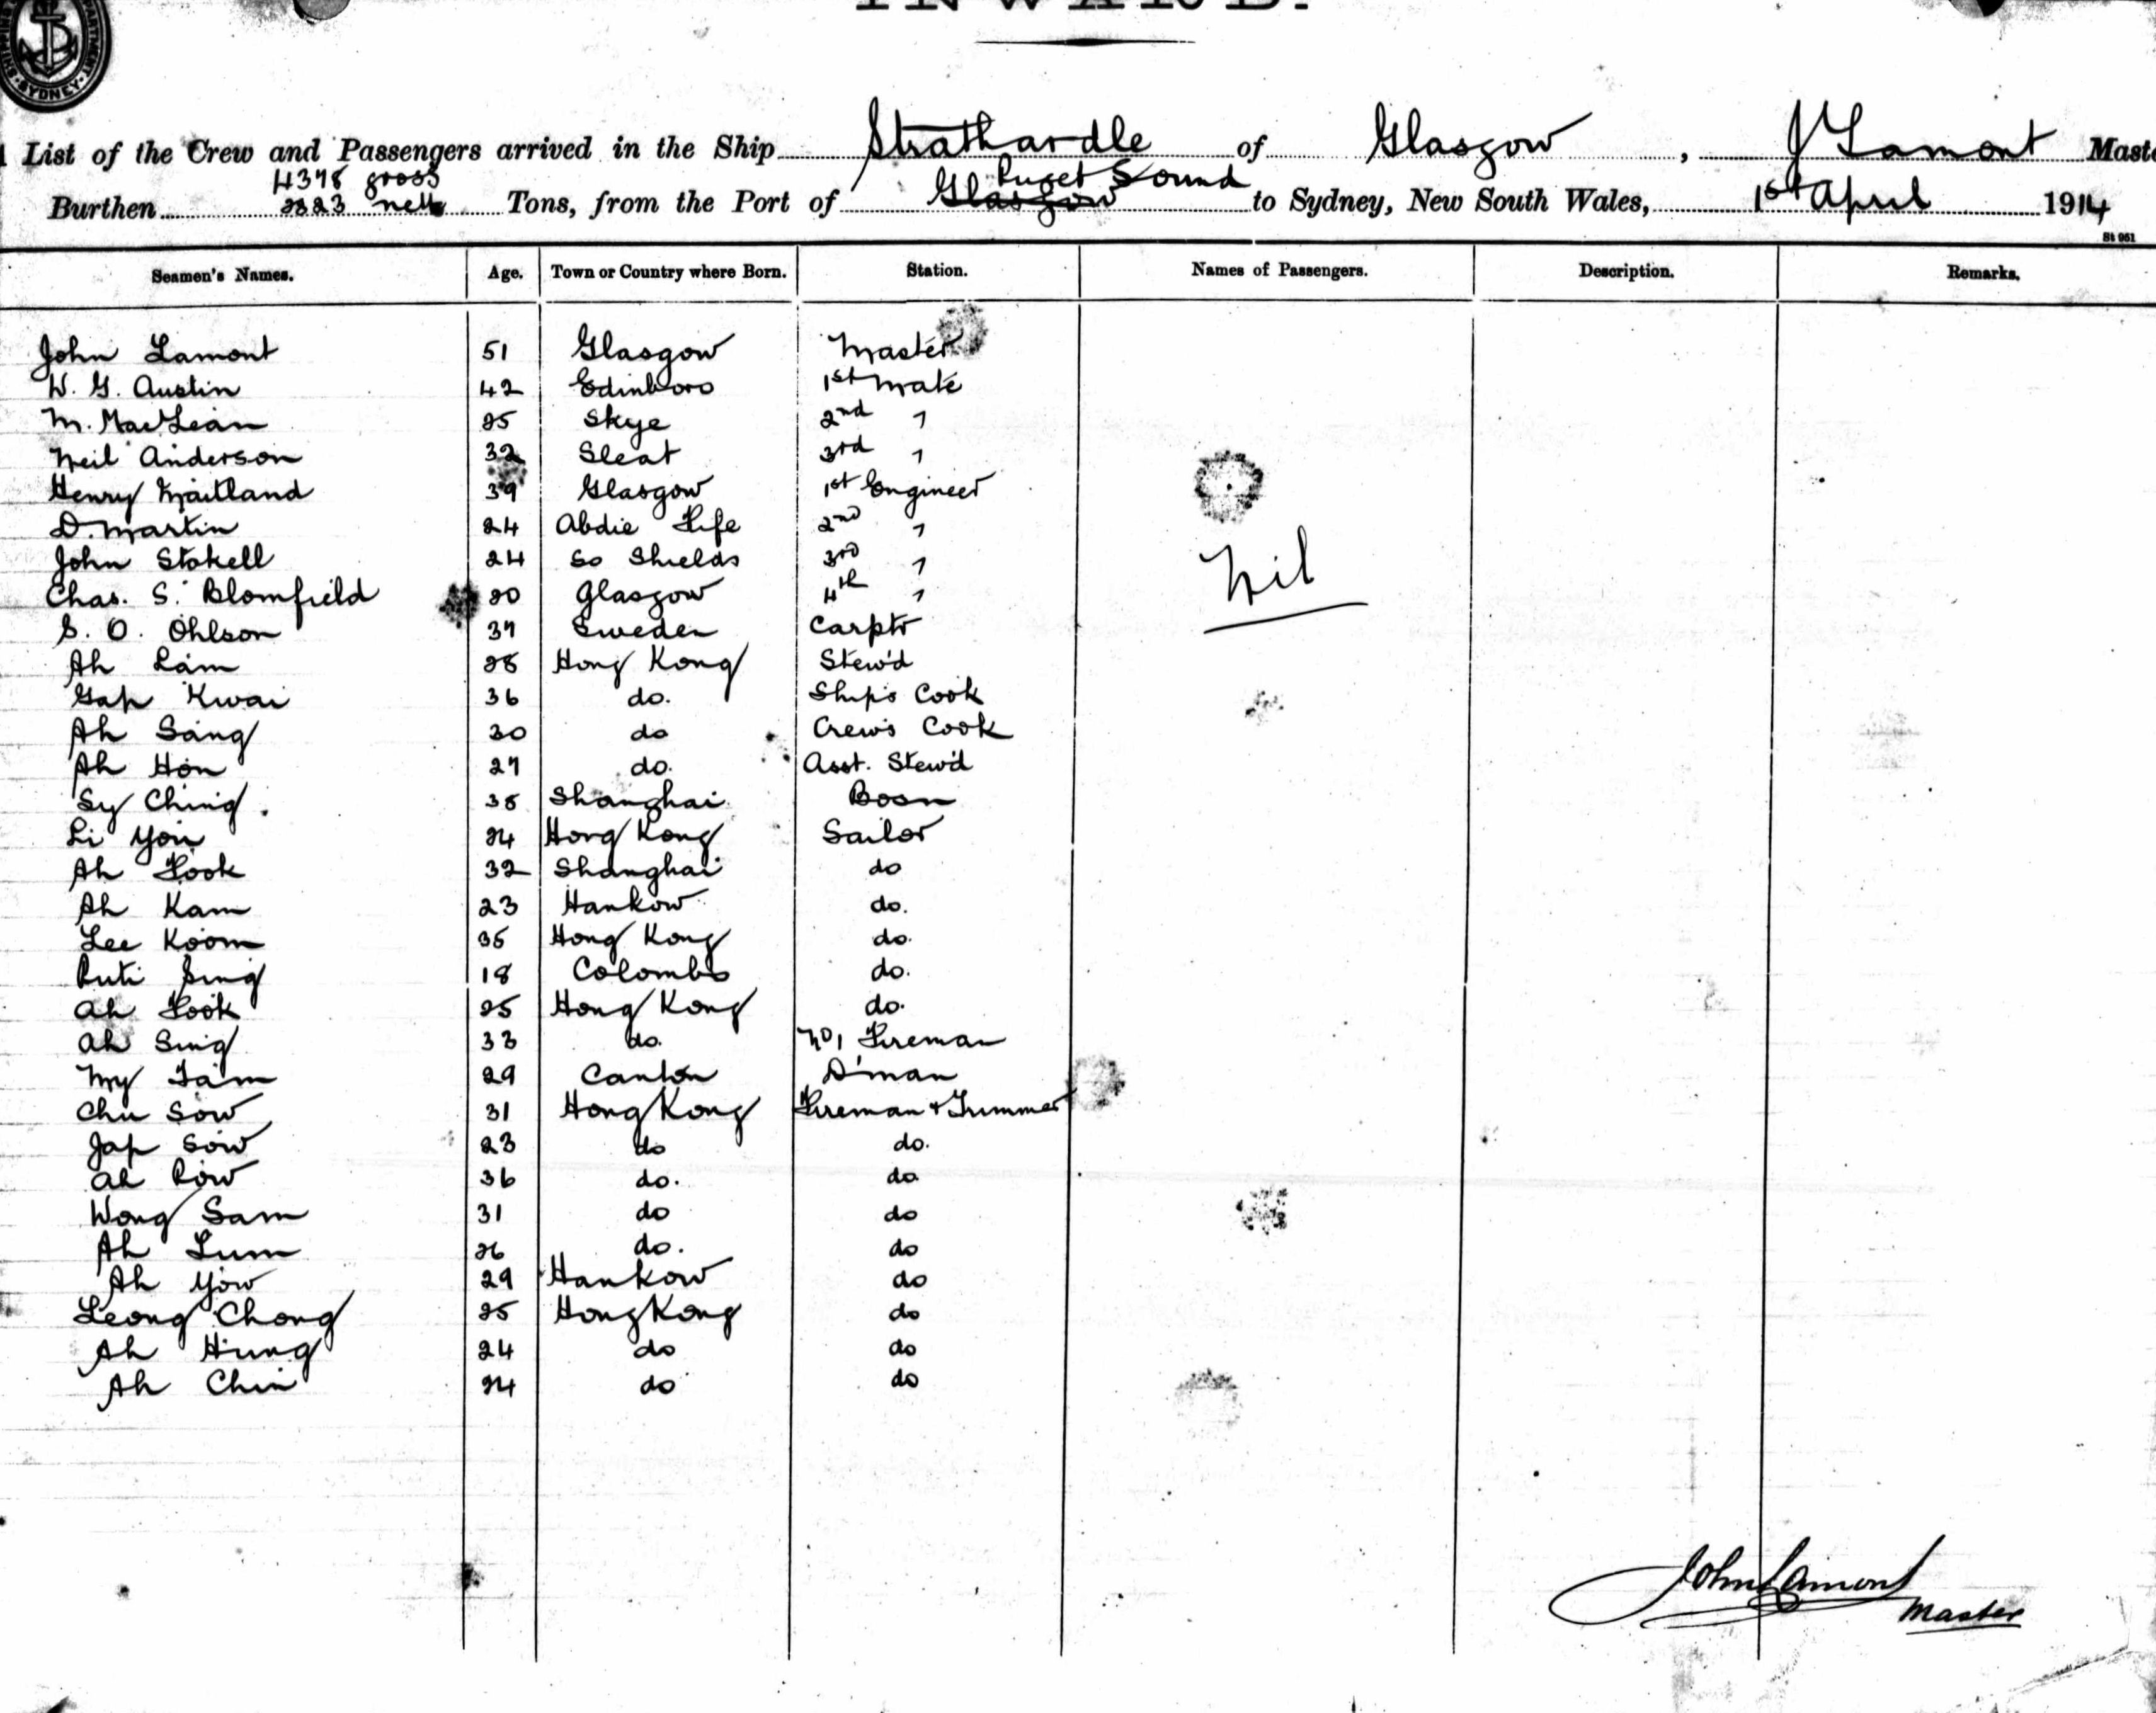 INWARD.
SYDNEY
List of the Crew and Passengers arrived in the Ship Strathardle of Glasgow, J Lamont Maste
4378 gross
Puget Sound
Burthen 2823 nett Tons, from the Port of Glasgow to Sydney, New South Wales, 1st April 1914
St 961
Seamen's Names. Age. Town or Country where Born. Station. Names of Passengers. Description. Remarks.
John Lamont 51 Glasgow Master
W. G. Austin 42 Edinboro 1st Mate
M. MacLean 25 Skye 2nd "
Neil Anderson 32 Sleat 3rd "
Henry Maitland 39 Glasgow 1st Engineer
D. Martin 24 Abdie Fife 2nd "
John Stokell 24 So Shields 3rd "
Nil
Chas. S. Blomfield 20 Glasgow 4th "
S. O. Ohlson 37 Sweden Carptr
Ah Lam 28 Hong Kong Stew'd
Yap Kwai 36 do. Ship's Cook
Ah Sang 30 do Crew's Cook
Ah Hon 27 do. Asst. Stew'd
Sy Ching 38 Shanghai Bosn
Li You 24 Hong Kong Sailor
Ah Fook 32 Shanghai do
Ah Kam 23 Hankow do.
Lee Koom 35 Hong Kong do.
Puti Sing 18 Colombo do.
Ah Fook 25 Hong Kong do.
Ah Sing 33 do. No 1 Fireman
Tam 29 Canton D'man
Chu Sow 31 Hong Kong Fireman & Trimmer
Jap Sow 23 do do.
Ah Row 36 do. do
Wong Sam 31 do do
Ah Lum 26 do. do
Ah Yow 29 Hankow do
Leong Chong 25 Hong Kong do
Ah Hung 24 do do
Ah Chin 24 do do
John Lamont
Master